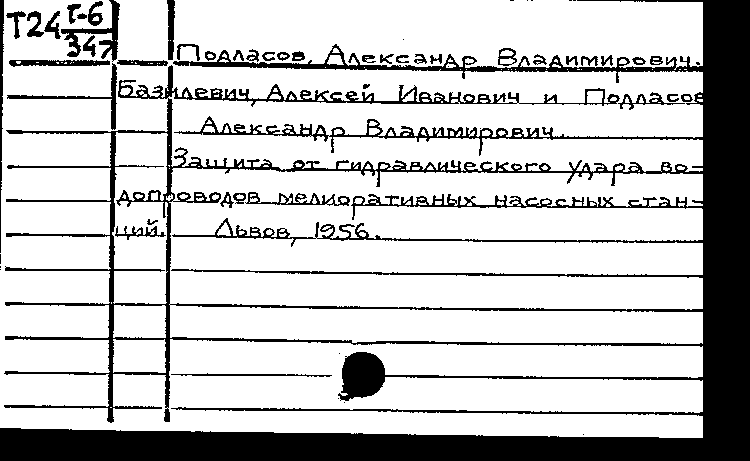 Т24 Г-6
347
Подласов, Александр Владимирович.
Базилевич, Алексей Иванович и Подласов
Александр Владимирович.
Защита от гидравлического удара во-
допроводов мелиоративных насосных стан-
ций. Львов, 1956.